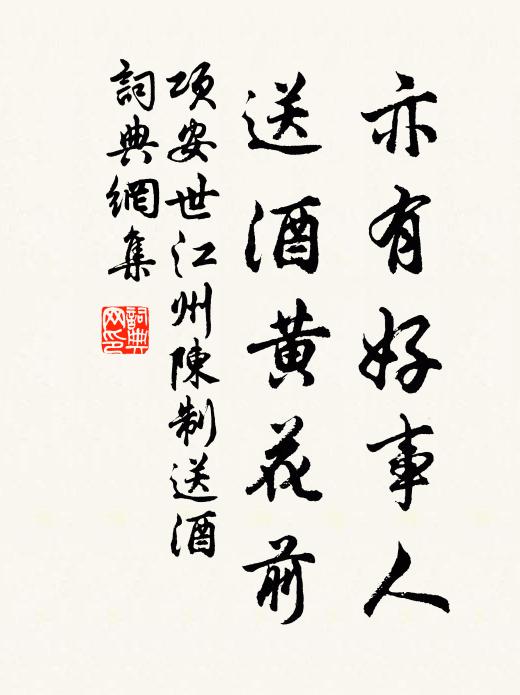 亦有好事人
送酒黄花前
項安世江州陳制送酒
詞典網集
詞典网印